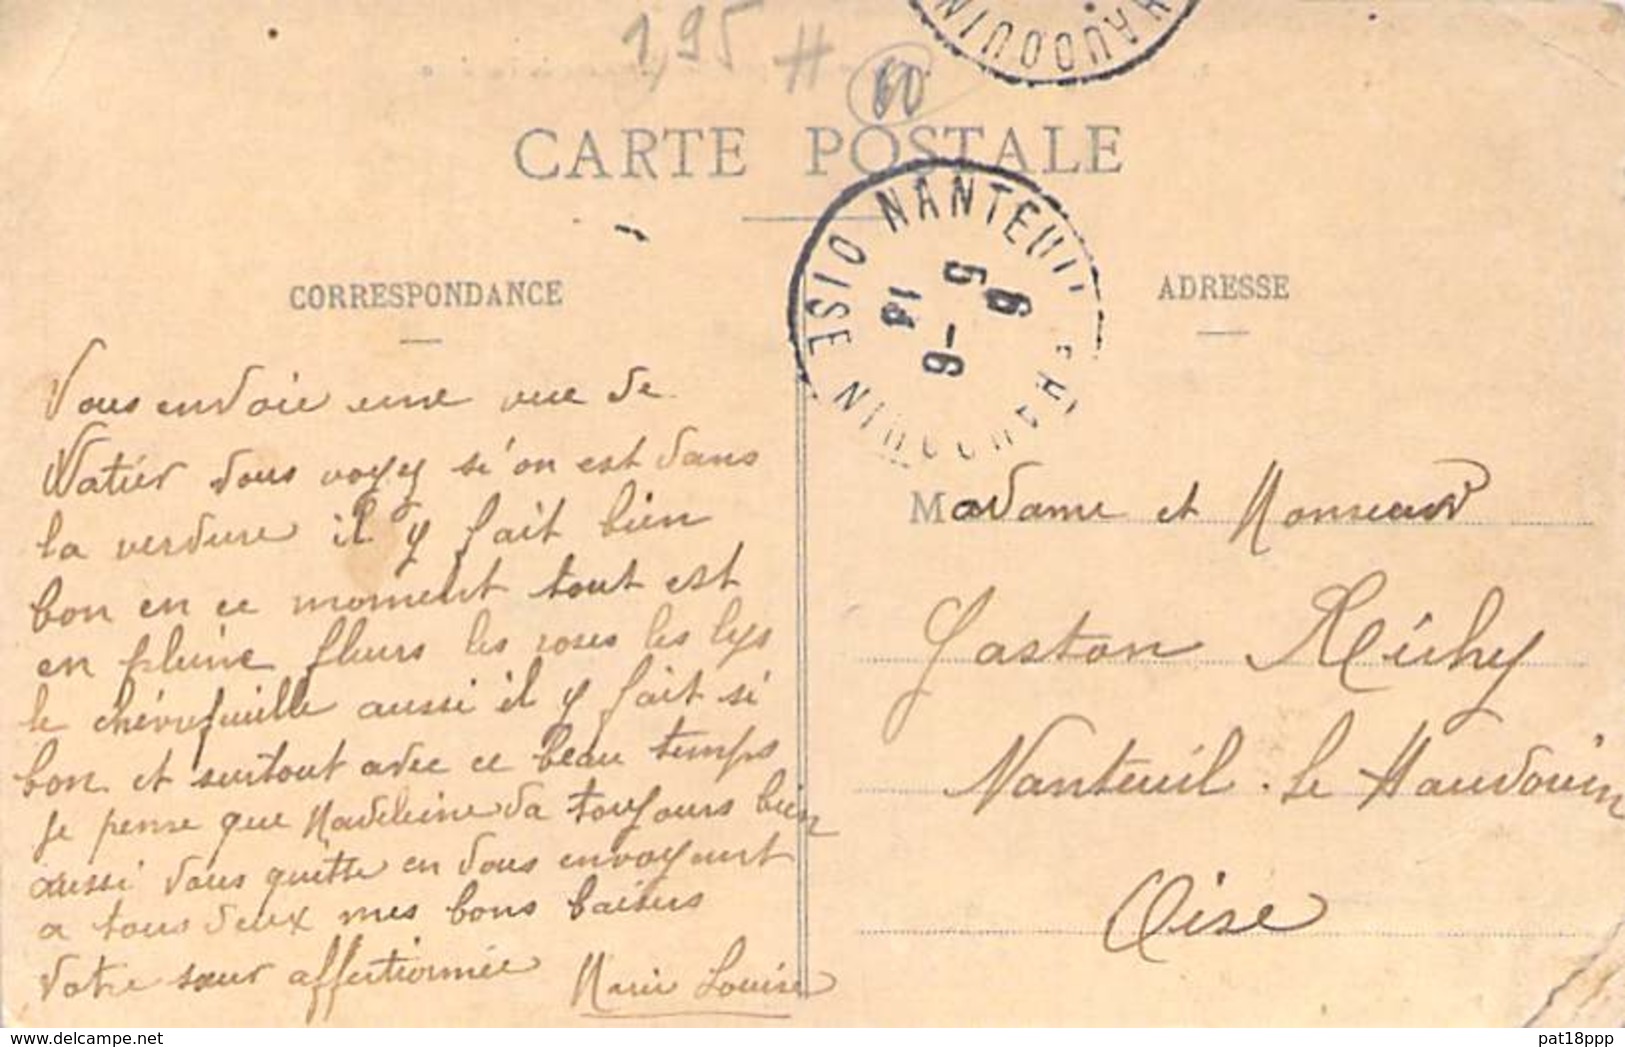 1,95 #
60
AUDOUIN
CARTE POSTALE
NANTEUIL
HAUDOUIN
OISE
CORRESPONDANCE
ADRESSE
Vous envoie une vue de
Watier vous voyez si on est dans
la verdure il y fait bien
bon en ce moment tout est
en pleine fleurs les roses les lys
le chévrefeuille aussi il y fait si
bon et surtout avec ce beau temps
je pense que Madeleine va toujours bien
aussi vous quitte en vous envoyant
a tous deux mes bons baisers
Votre sœur affectionnée
Marie Louise
Madame et Monsieur
Gaston
Nanteuil-le Haudouin
Oise
pat18ppp